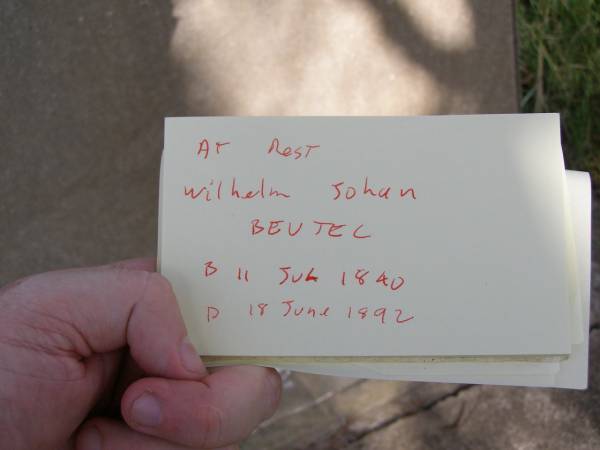 At Rest
Wilhelm Johan
BEUTEL
B 11 Jul 1840
D 18 June 1892